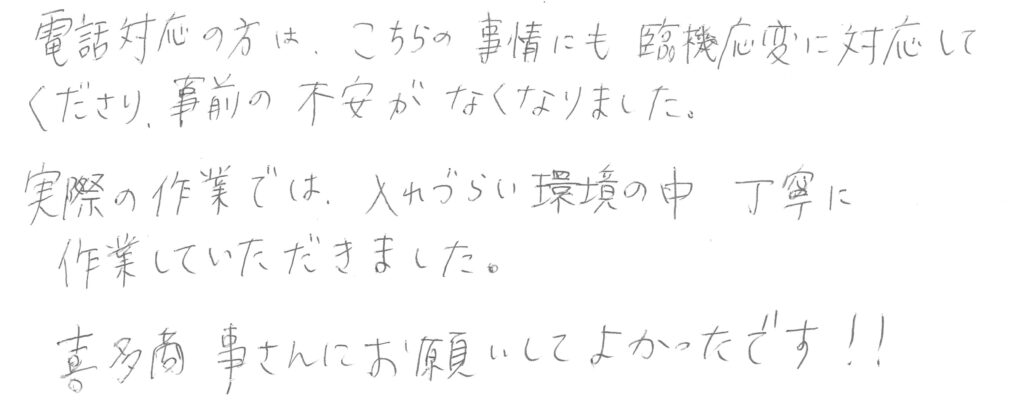 電話対応の方は、こちらの事情にも臨機応変に対応して
くださり、事前の不安がなくなりました。
実際の作業では、入れづらい環境の中 丁寧に
作業していただきました。
喜多商事さんにお願いしてよかったです!!